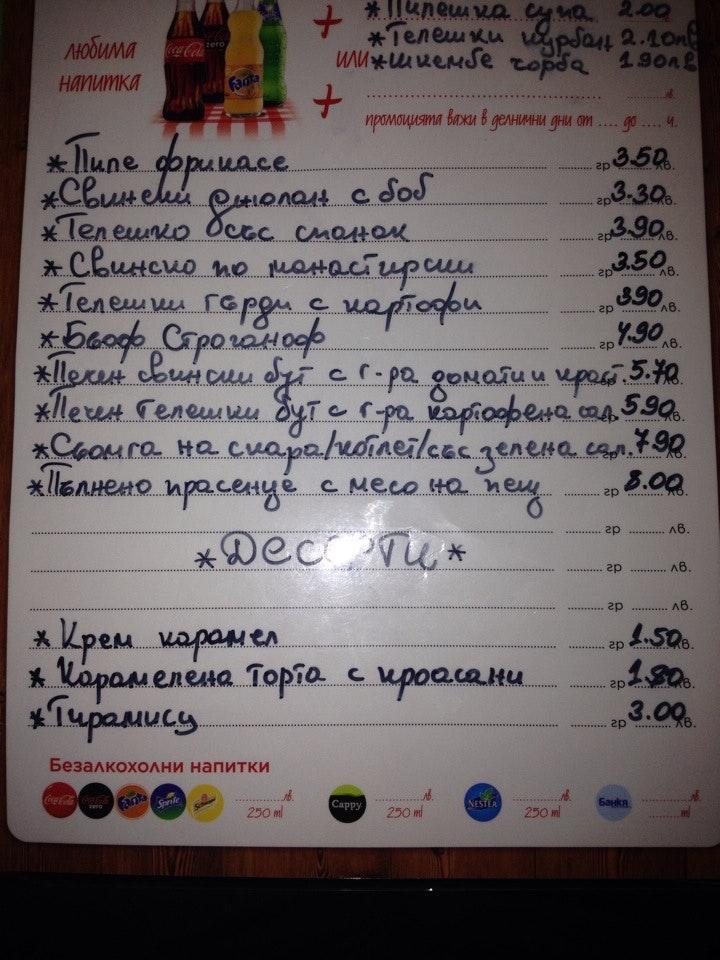 * Пилешка супа 2.00
* Телешки курбан 2.10лв
или * шкембе чорба 1.90лв
любима
напитка
+
+
лв.
промоцията важи в делнични дни от .... до .... ч.
* Пиле фрикасе гр 3.50 лв.
* Свински джолан с боб гр 3.30 лв.
* Телешко със спанак гр 3.90 лв.
* Свинско по манастирски гр 3.50 лв.
* Телешки гърди с картофи гр 3.90 лв.
* Бьоф Строганоф гр 4.90 лв.
* Печен свински бут с г-ра домати и краст. 5.70 лв.
* Печен телешки бут с г-ра картофена сал. 5.90 лв.
* Сьомга на скара/котлет/със зелена сал. 7.90 лв.
* Пълнено прасенце с месо на пещ гр 8.00 лв.
гр лв.
* Десерти * гр лв.
гр лв.
* Крем карамел гр 1.50 лв.
* Карамелена торта с кроасани гр 1.80 лв.
* Тирамису гр 3.00 лв.
Безалкохолни напитки
Coca-Cola Coca-Cola zero Fanta Sprite Schweppes лв. 250 ml Cappy лв. 250 ml NESTEA лв. 250 ml Банкя лв. ml